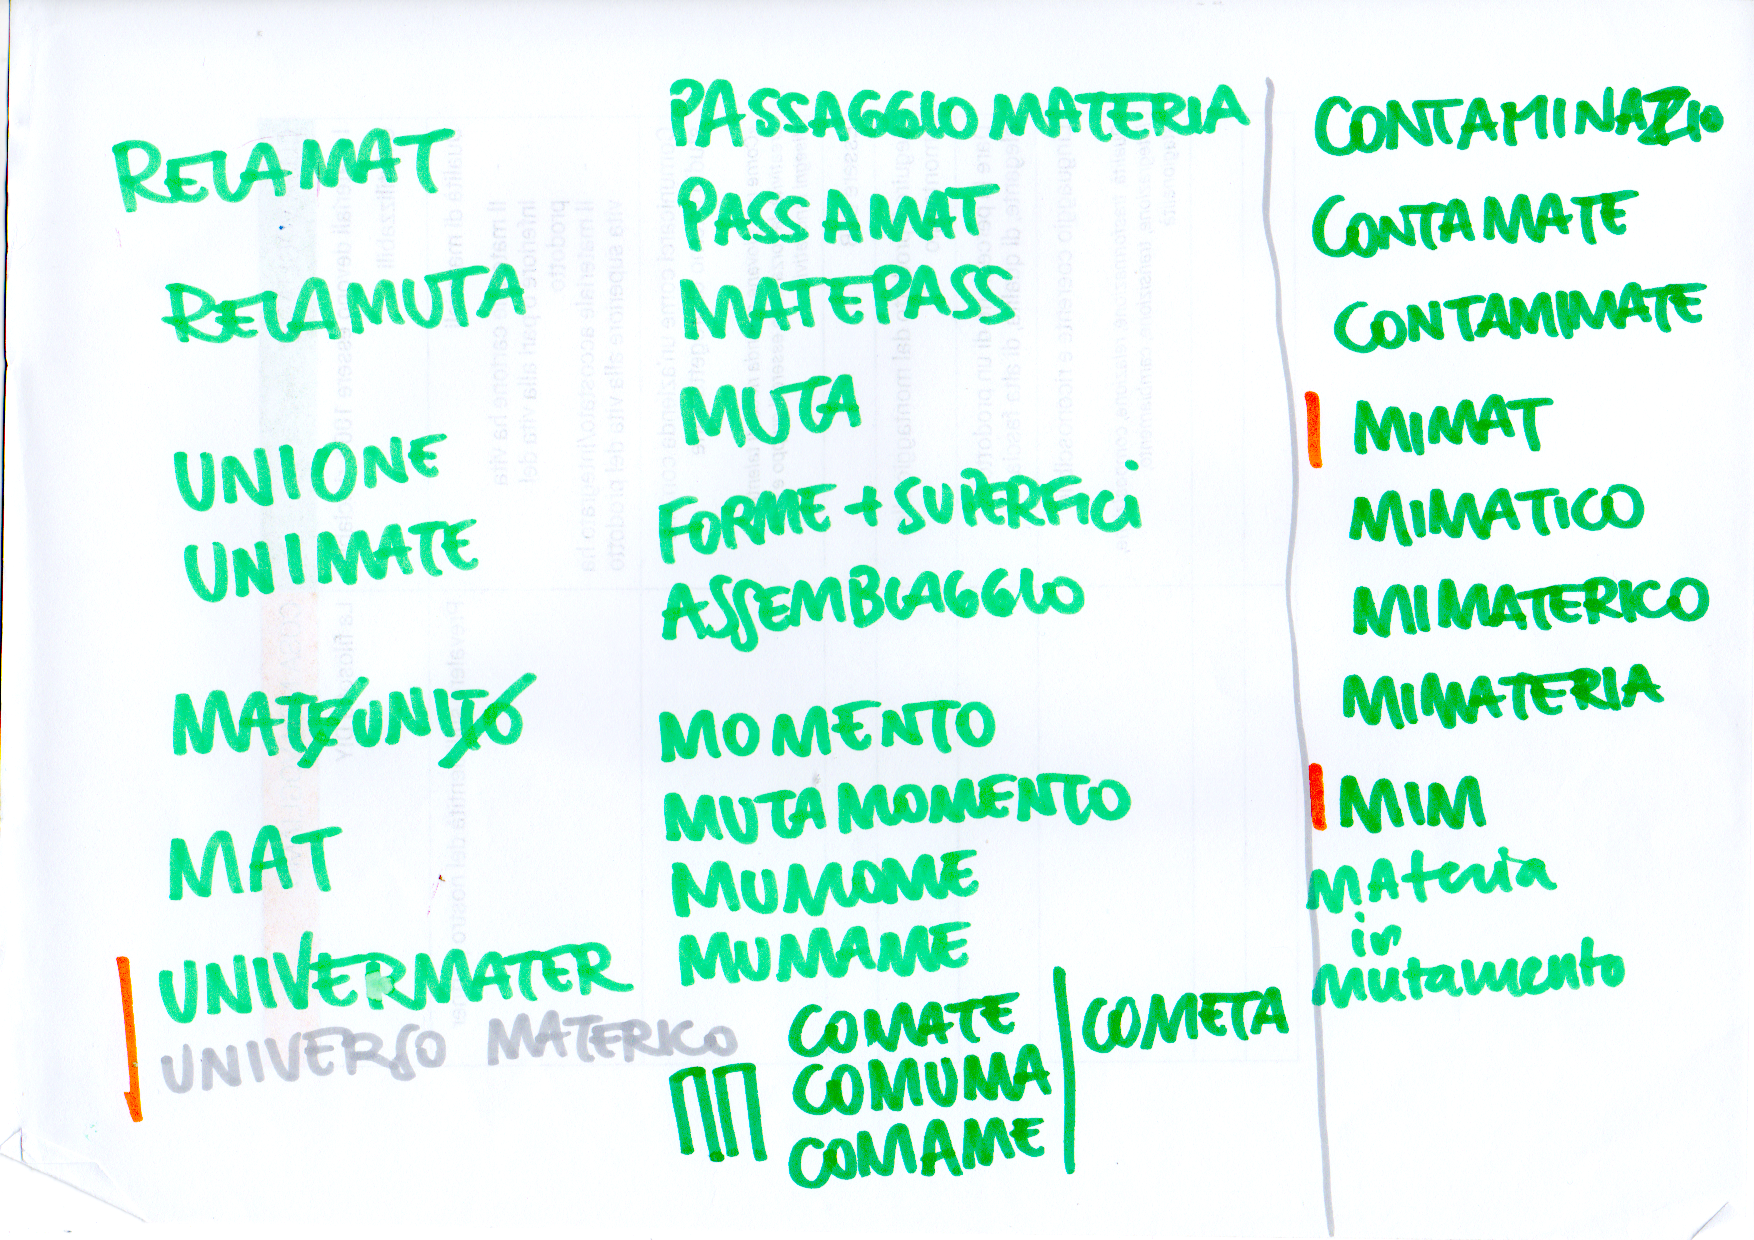 RELAMAT
RELAMUTA
UNIONE
UNIMATE
MATEUNITO
MAT
UNIVERMATER
UNIVERSO MATERICO
PASSAGGIO MATERIA
PASSAMAT
MATEPASS
MUTA
FORME + SUPERFICI
ASSEMBLAGGIO
MOMENTO
MUTAMOMENTO
MUMOME
MUMAME
COMATE
COMUMA
COMAME
COMETA
CONTAMINAZIO
CONTAMATE
CONTAMIMATE
MIMAT
MIMATICO
MIMATERICO
MIMATERIA
MIM
materia
in
mutamento